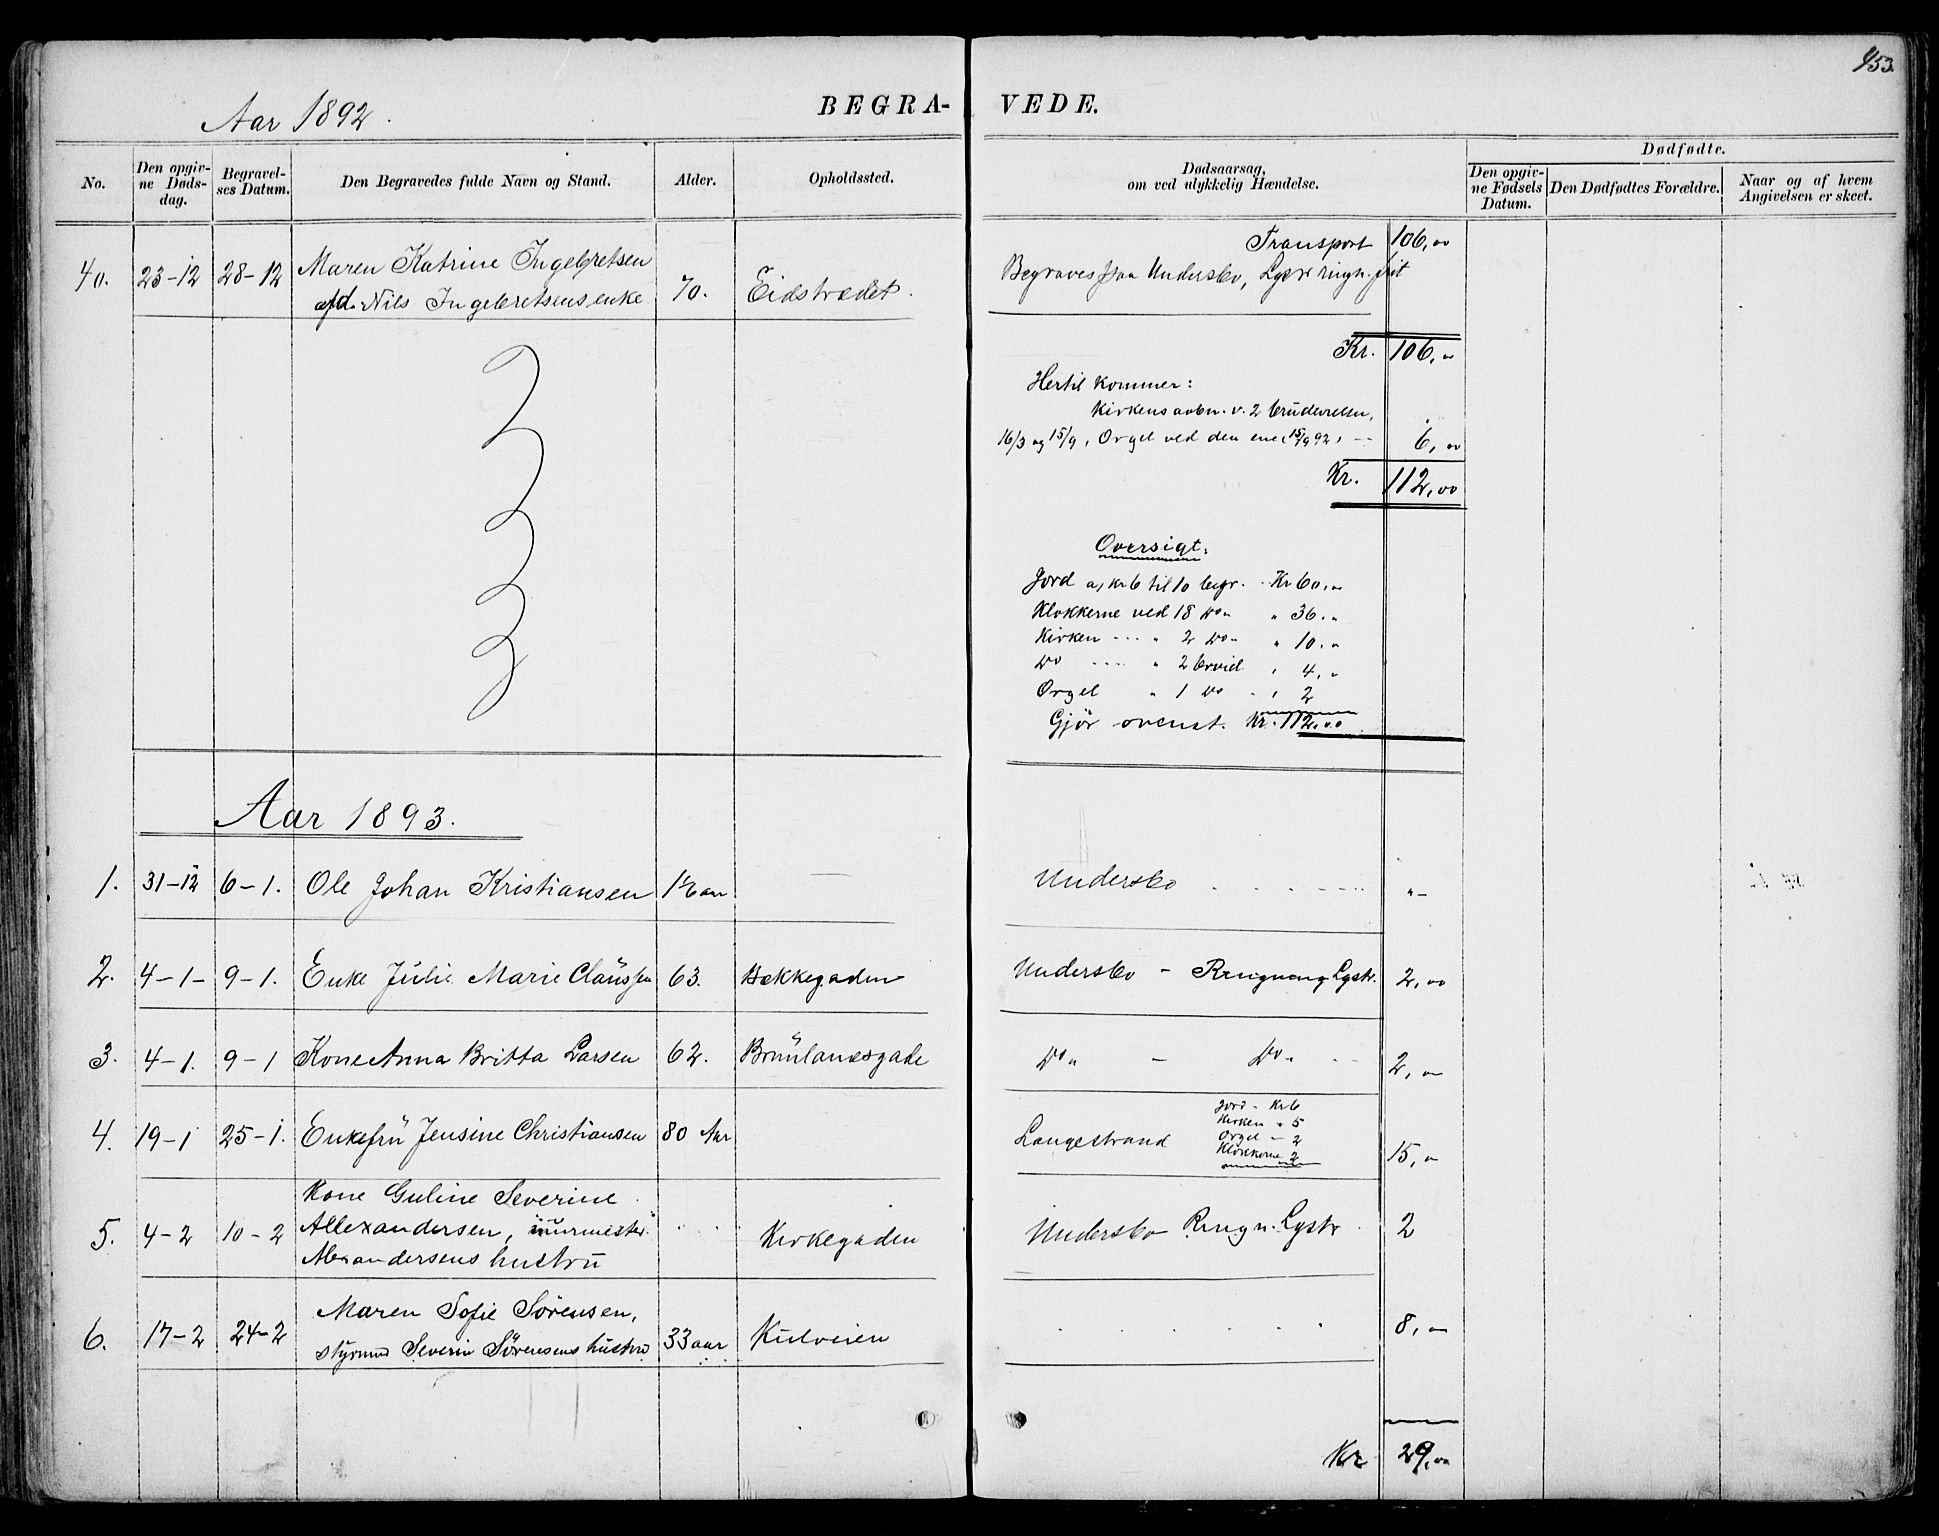 153
Aar 1892.
BEGRA-VEDE.
No.
Den opgivne Dødsdag.
Begravelses Datum.
Den Begravedes fulde Navn og Stand.
Alder.
Opholdssted.
Dødsaarsag,
om ved ulykkelig Hændelse.
Dødfødte.
Den opgivne Fødsels Datum.
Den Dødfødtes Forældre.
Naar og af hvem Angivelsen er skeet.
Transport 106,00
40. 23-12 28-12 Maren Katrine Ingebretsen
afd. Nils Ingebretsens enke 70. Eidstrædet.
Begraves paa Undersbo, Lystr ringn. frit
Kr. 106,00
Hertil kommer:
Kirkens aabn. v. 2 brudevielser,
16/3 og 15/9, Orgel ved den ene 15/9 92, 6,00
Kr. 112,00
Oversigt.
Jord a, kr 6 til 10 begr. Kr 60,00
Klokkerne ved 18 Do " 36,"
Kirken " 2 Do " 10,"
Do " 2 brvid. " 4,"
Orgel " 1 Do " 2
Gjør ovenst. Kr. 112,00
Aar 1893.
1. 31-12 6-1. Ole Johan Kristiansen — Undersbo "-
2. 4-1- 9-1. Enke Julie Marie Claussen 63. Bækkegaden Undersbo - Ringning Lystr. 2,00
3. 4-1. 9-1 Kone Anna Britta Larsen 62. Brunlanesgade Do " - Do " 2,00
4. 19-1 25-1. Enkefru Jensine Christiansen 80 Aar Langestrand
Jord - Kr 6
Kirken " 5
Orgel - 2
Klokkerne 2
15,00
5. 4-2 10-2 Kone Guline Severine
Allexandersen, murmester
Alexandersens hustru
Kirkegaden Undersbo Ringn. Lystr 2
6. 17-2 24-2 Maren Sofie Sørensen,
styrmd Severin Sørensens hustru 33 aar Kulveien 8,00
Kr 29,00